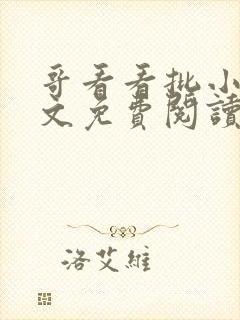 哥看看批小
文免費閱讀
洛艾維